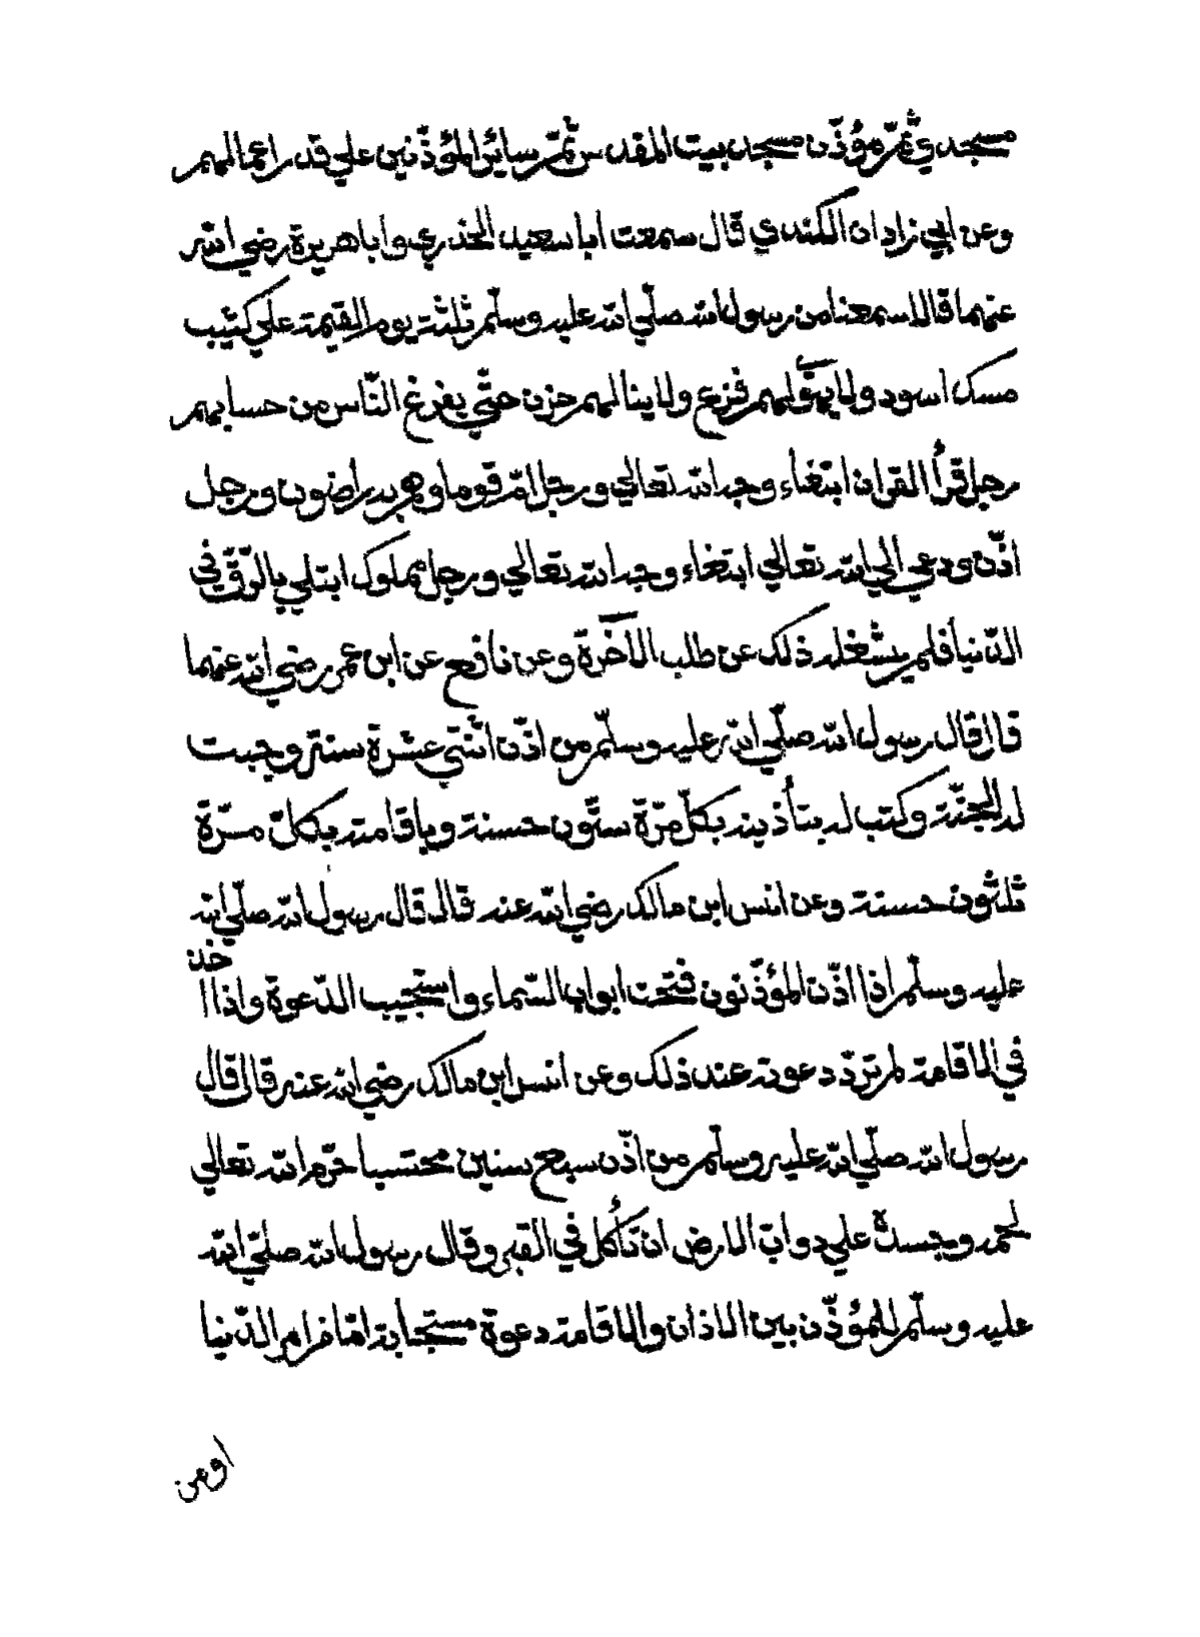 مسجدي ثمّ مؤذّن مسجد بيت المقدس ثمّ سائر المؤذّنين علي قدر اعمالهم
وعن ابي زادان الكندي قال سمعت ابا سعيد الخدري وابا هريرة رضي الله
عنهما قالا سمعنا من رسول الله صلّي الله عليه وسلّم ثلثة يوم القيمة علي كثيب
مسك اسود ولا يهولهم فزع ولا ينالهم حزن حتّي يفرغ النّاس من حسابهم
رجل قرأ القران ابتغاء وجه الله تعالي ورجل امّ قوما وهم به راضون ورجل
اذّن ودعي الي الله تعالي ابتغاء وجه الله تعالي ورجل مملوك ابتلي بالرّقّ في
الدّنيا فلم يشغله ذلك عن طلب الآخرة وعن نافع عن ابن عمر رضي الله عنهما
قال قال رسول الله صلّي الله عليه وسلّم من اذّن اثنتي عشرة سنة وجبت
له الجنّة وكتب له بتأذينه بكلّ مرّة ستّون حسنة وباقامته بكلّ مرّة
ثلثون حسنة وعن انس ابن مالك رضي الله عنه قال قال رسول الله صلّي الله
عليه وسلّم اذا اذّن المؤذّنون فتحت ابواب السّماء واستجيب الدّعوة واذا اخذ
في الاقامة لم تردّ دعوة عند ذلك وعن انس ابن مالك رضي الله عنه قال قال
رسول الله صلّي الله عليه وسلّم من اذّن سبع سنين محتسبا حرّم الله تعالي
لحمه وجسده علي دوابّ الارض ان تأكل في القبر وقال رسول الله صلّي الله
عليه وسلّم للمؤذّن بين الاذان والاقامة دعوة مستجابة امّا فرام الدّنيا
او عن